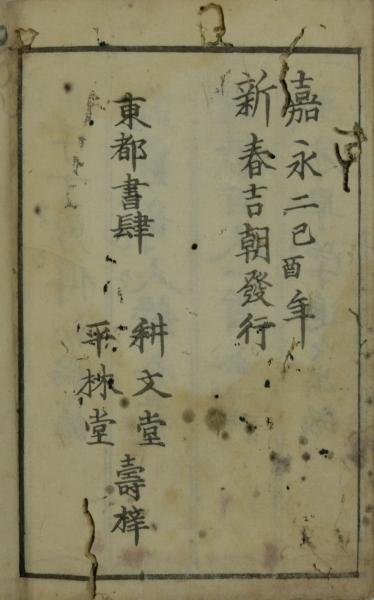 嘉永二己酉年
新春吉朝發行
東都書肆
耕文堂
平林堂
壽梓